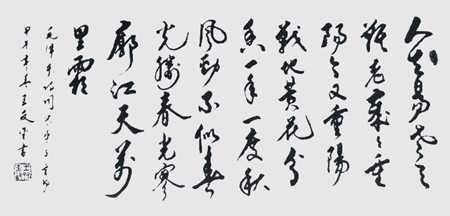 人生易老天
難老歲歲重
陽今又重陽
戰地黄花分
外香一年一度秋
風勁不似春
光勝春光寥
廓江天萬
里霜
毛澤東詞采桑子重陽
甲午年春王文書